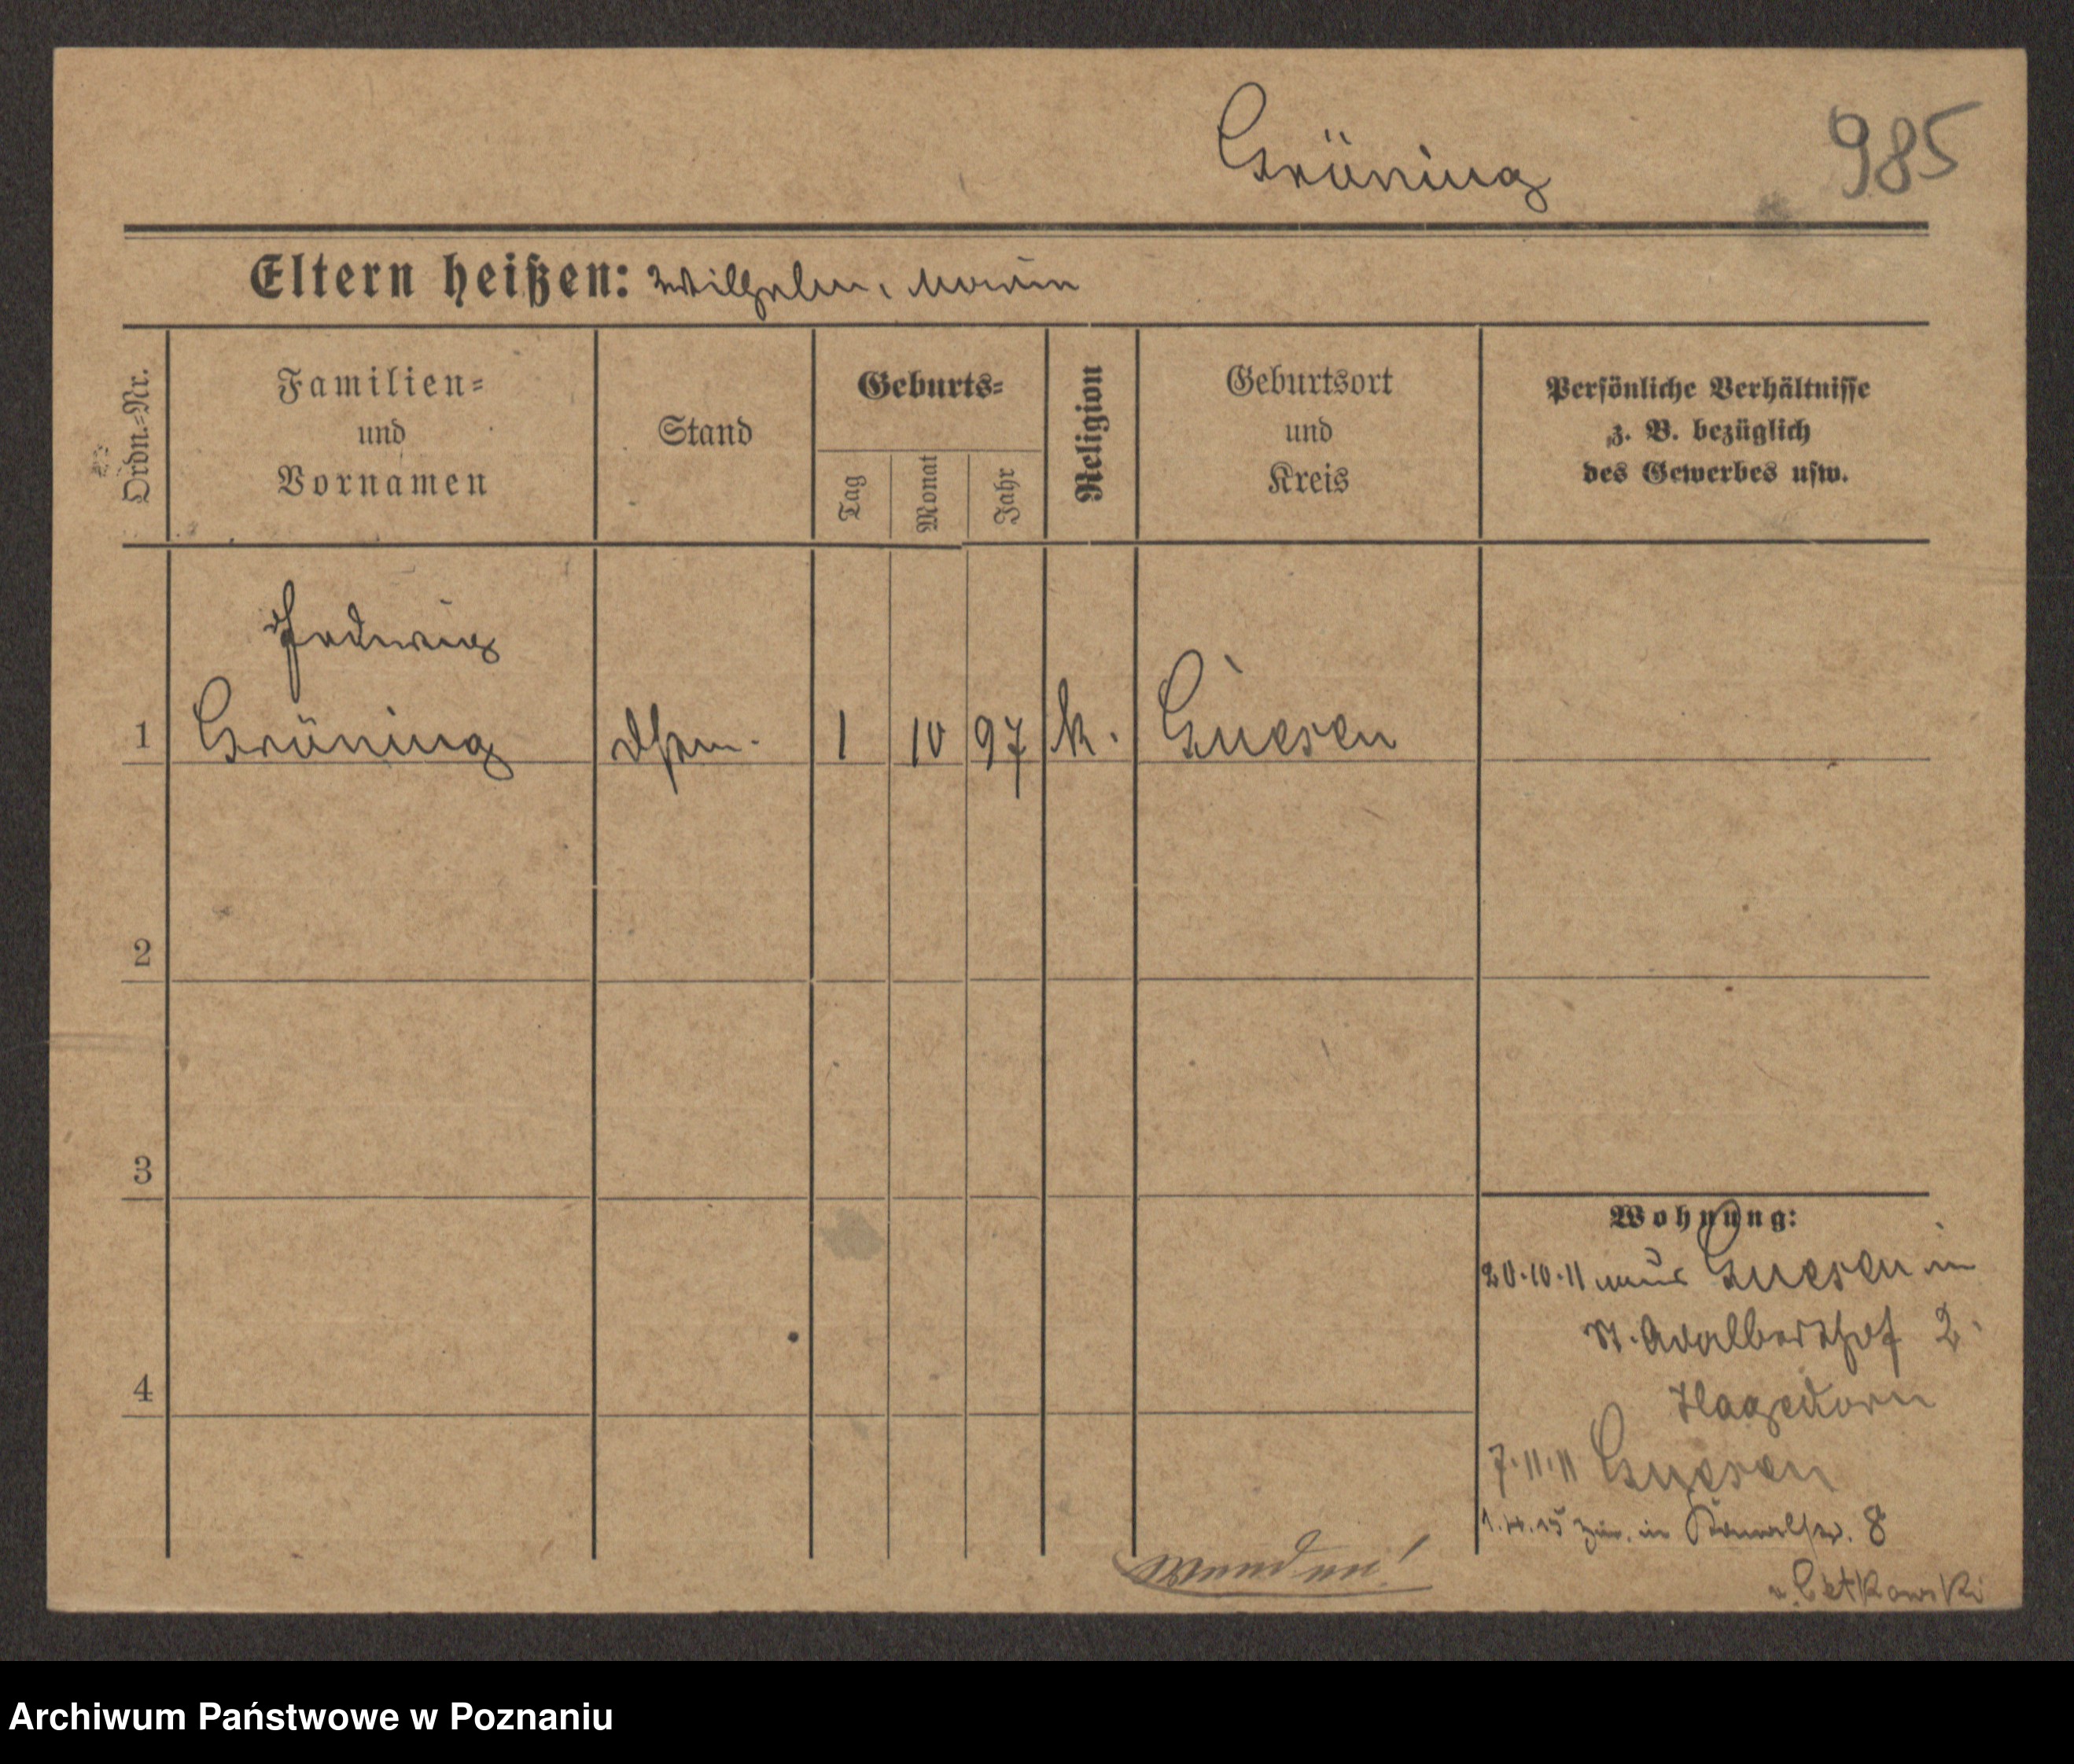 Gröning
985
Eltern heißen: Wilhelm, Marie
Ordn.=Nr.
Familien=
und
Vornamen
Stand
Geburts=
Tag
Monat
Jahr
Religion
Geburtsort
und
Kreis
Persönliche Verhältnisse
z. B. bezüglich
des Gewerbes usw.
Hedwig
1 Gröning 1 10 97 k. Gnesen
2
3
4
Wohnung:
20.10.11 aus Gnesen in
St. Adalberthof 2.
Hagedorn
7.11.11 Gnesen
1.4.15 in Kanalstr. 8
Wenden!
Archiwum Państwowe w Poznaniu